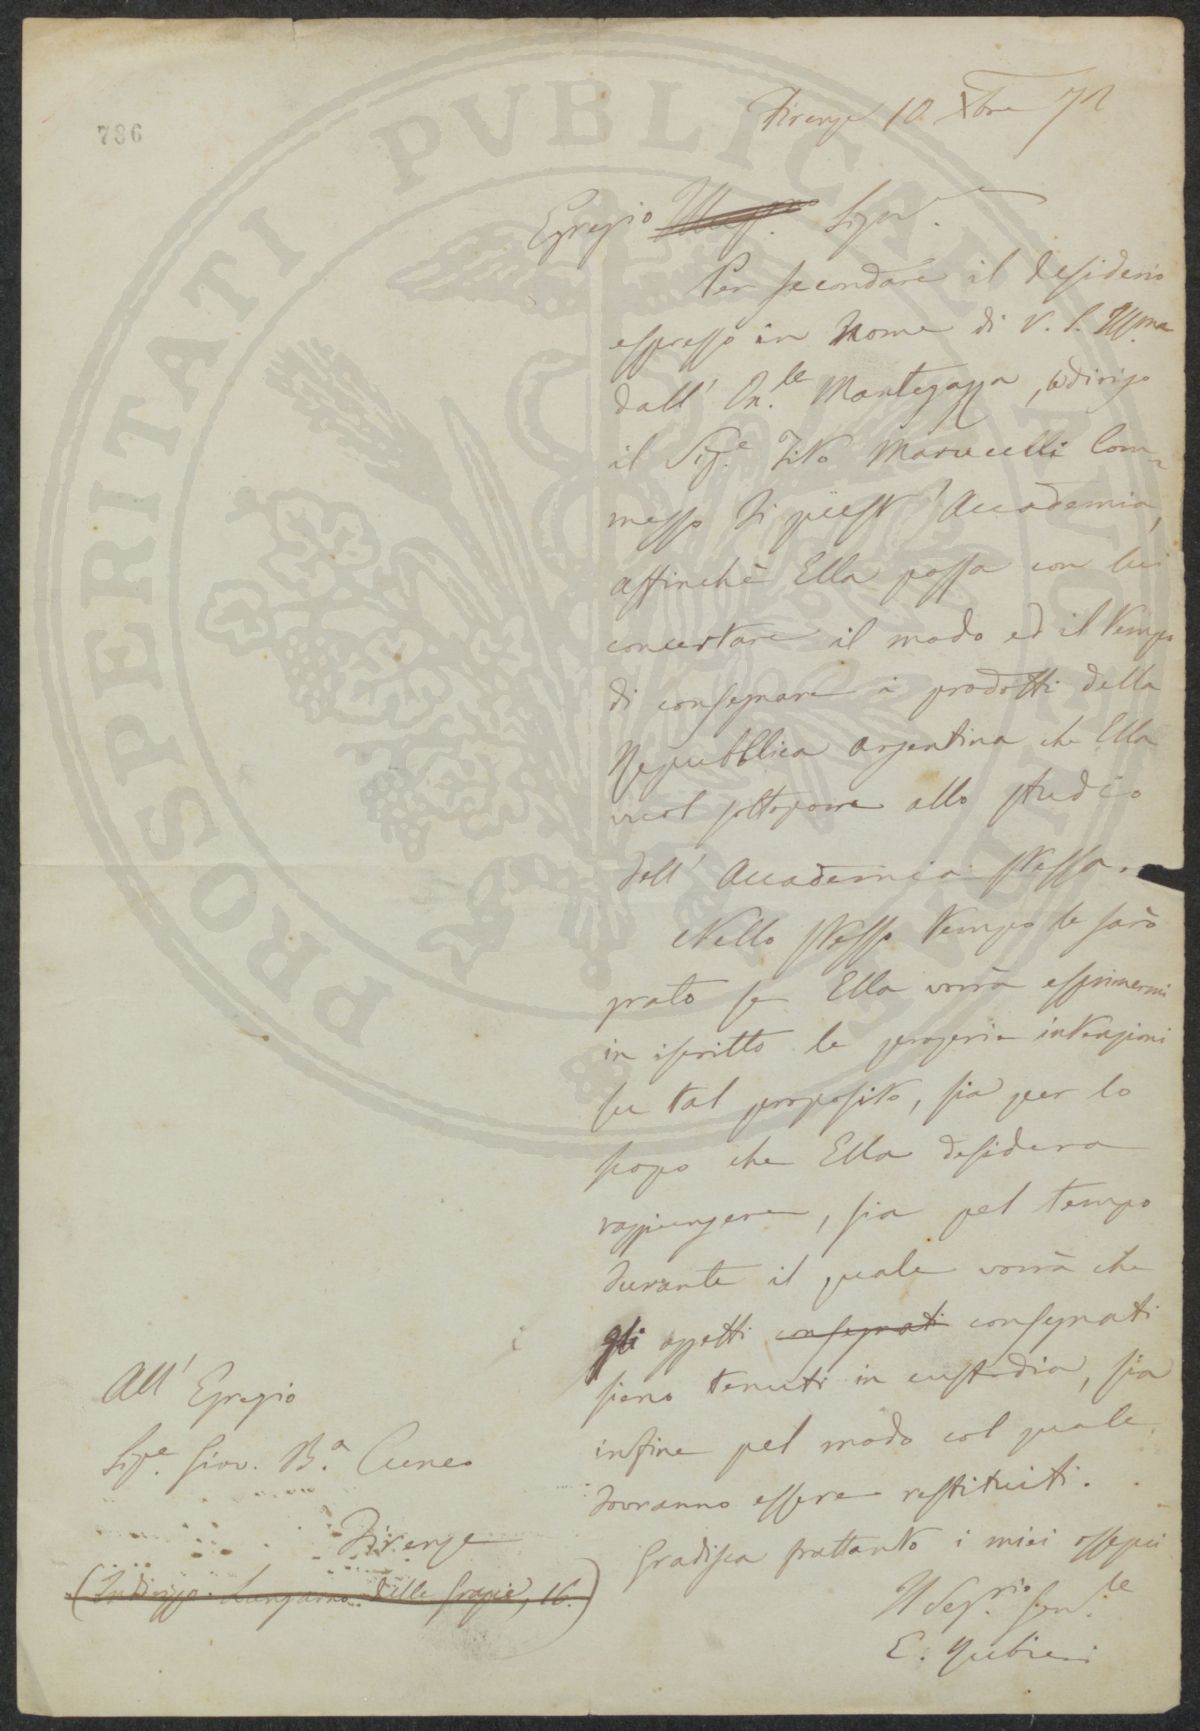 786
Firenze 10 Xbre 72
Egregio Sigre.
Per secondare il desiderio
espresso in Nome di V. S. Illma
dall' On.le Mantegazza, indirizzo
il Sige. Tito Marucelli Com-
messo di quest' Accademia,
affinchè Ella possa con lui
concertare il modo ed il tempo
di consegnare i prodotti della
Repubblica Argentina che Ella
vuol sottoporre allo studio
dell' Accademia stessa.
Nello stesso tempo le sarò
grato se Ella vorrà esprimermi
in iscritto le proprie intenzioni
su tal proposito, sia per lo
scopo che Ella desidera
raggiungere, sia pel tempo
durante il quale vorrà che
gli oggetti consegnati consegnati
sieno tenuti in custodia, sia
infine pel modo col quale
dovranno essere restituiti.
Gradisca frattanto i miei ossequi
Il Segrio. Gen.le
E. Rubieri
All' Egregio
Sige. Giov. B.a Cuneo
Firenze
(Indirizzo. Lungarno delle Grazie, 16.)
PROSPERITATI PVBLICAE AVGENDAE